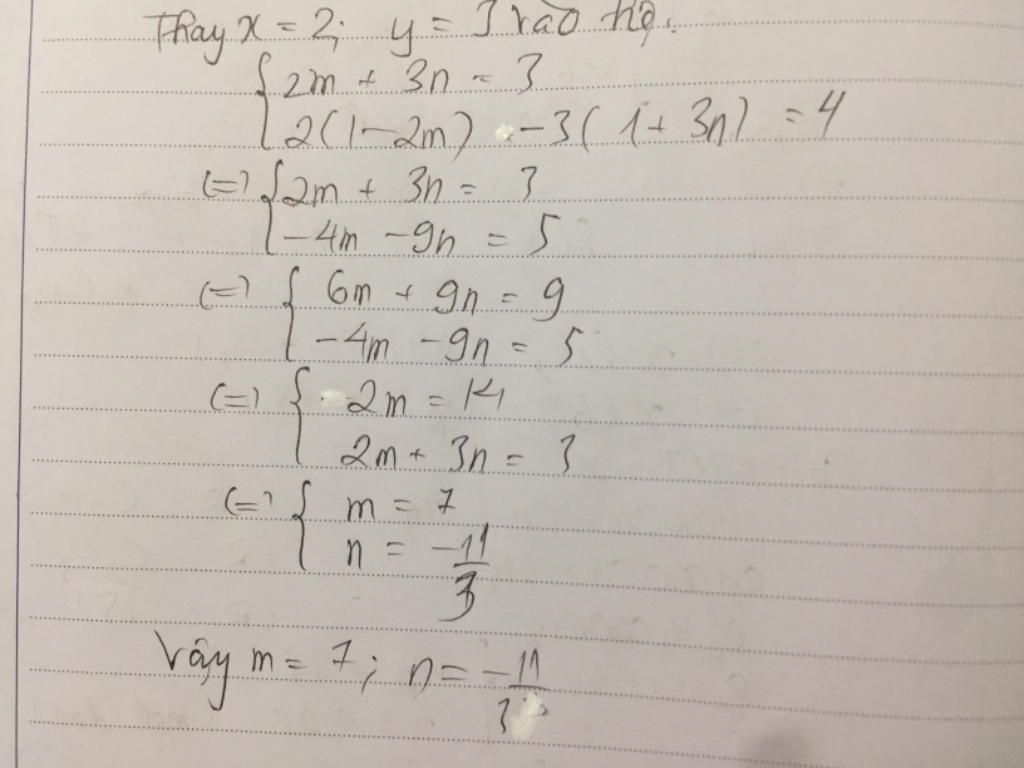 Thay x = 2; y = 3 vào hệ:
{ 2m + 3n = 3
2(1-2m) -3(1+3n) = 4
(=) { 2m + 3n = 3
-4m -9n = 5
(=) { 6m + 9n = 9
-4m -9n = 5
(=) { 2m = 14
2m + 3n = 3
(=) { m = 7
n = -11/3
Vậy m = 7; n = -11/3